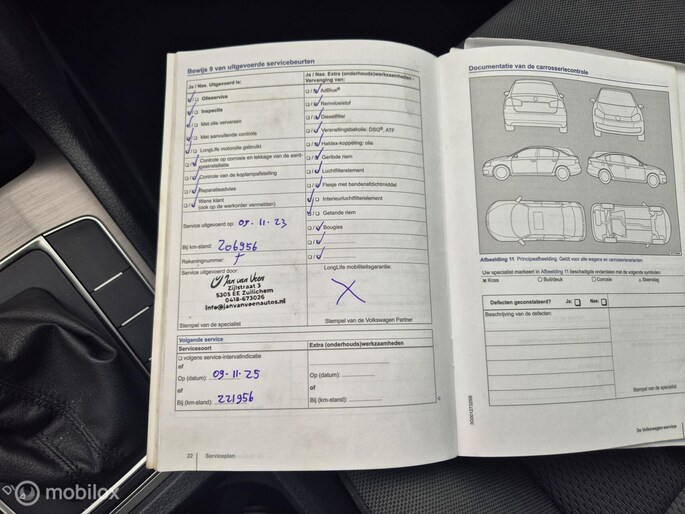 Bewijs 9 van uitgevoerde servicebeurten
Ja / Nee. Uitgevoerd is:
Olieservice
Inspectie
Met olie verversen
Met aanvullende controle
LongLife motorolie gebruikt
Controle op corrosie en lekkage van de
Controle van de koplampafstelling
Reparatieadvies
Wens klant
(ook op de werkorder vermelden)
Service uitgevoerd op: 09-11-23
Bij km-stand: 206956
Rekeningnummer:
Service uitgevoerd door:
Jan van Veen
Zijlstraat 3
5305 EE Zuilichem
0418-673026
info@janvanveenautos.nl
Stempel van de specialist
Ja / Nee. Extra (onderhouds)werkzaamheden –
Vervanging van:
AdBlue®
Remvloeistof
Dieselfilter
Versnellingsbakolie: DSG®, ATF
Haldex-koppeling: olie
Geribde riem
Luchtfilterelement
Flesje met bandenafdichtmiddel
Interieurluchtfilterelement
Getande riem
Bougies
LongLife mobiliteitsgarantie:
X
Stempel van de Volkswagen Partner
Volgende service
Servicesoort
volgens service-intervalindicatie
of
Op (datum): 09-11-25
of
Bij (km-stand): 221956
Extra (onderhouds)werkzaamheden
Op (datum):
of
Bij (km-stand):
22 | Serviceplan
Documentatie van de carrosseriecontrole
Afbeelding 11 Principeafbeelding. Geldt voor alle wagens en carrosserievarianten
Uw specialist markeert in Afbeelding 11 beschadigde onderdelen met de volgende symbolen:
Kras
Buil/deuk
Corrosie
Steenslag
Defecten geconstateerd? Ja: Nee:
Beschrijving van de defecten:
Stempel van de specialist
De Volkswagen-service
mobilox